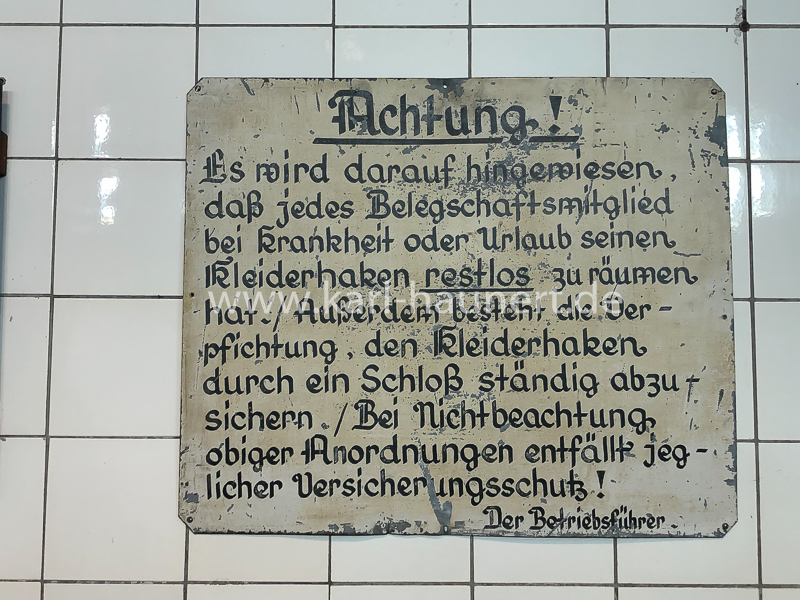 Achtung!
Es wird darauf hingewiesen,
daß jedes Belegschaftsmitglied
bei Krankheit oder Urlaub seinen
Kleiderhaken restlos zu räumen
hat./Außerdem besteht die Ver-
pflichtung, den Kleiderhaken
durch ein Schloß ständig abzu-
sichern./Bei Nichtbeachtung
obiger Anordnungen entfällt jeg-
licher Versicherungsschutz!
Der Betriebsführer.
www.karl-haunert.de